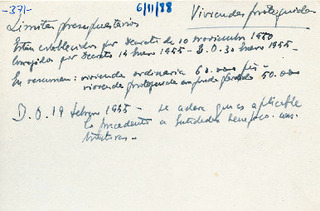 -371-
6/11/88
Viviendas protegidas
Limites presupuestarios
Están establecidos por Decreto de 10 noviembre 1950
Corregidos por Decreto 14 Enero 1955 - B.O. 30 Enero 1955 -
En resumen: vivienda ordinaria 60.000 pts -
vivienda protegida 50.000
B.O. 19 Febrero 1955 - Se aclara que es aplicable
lo precedente a Entidades benéfico-cons-
tructoras -